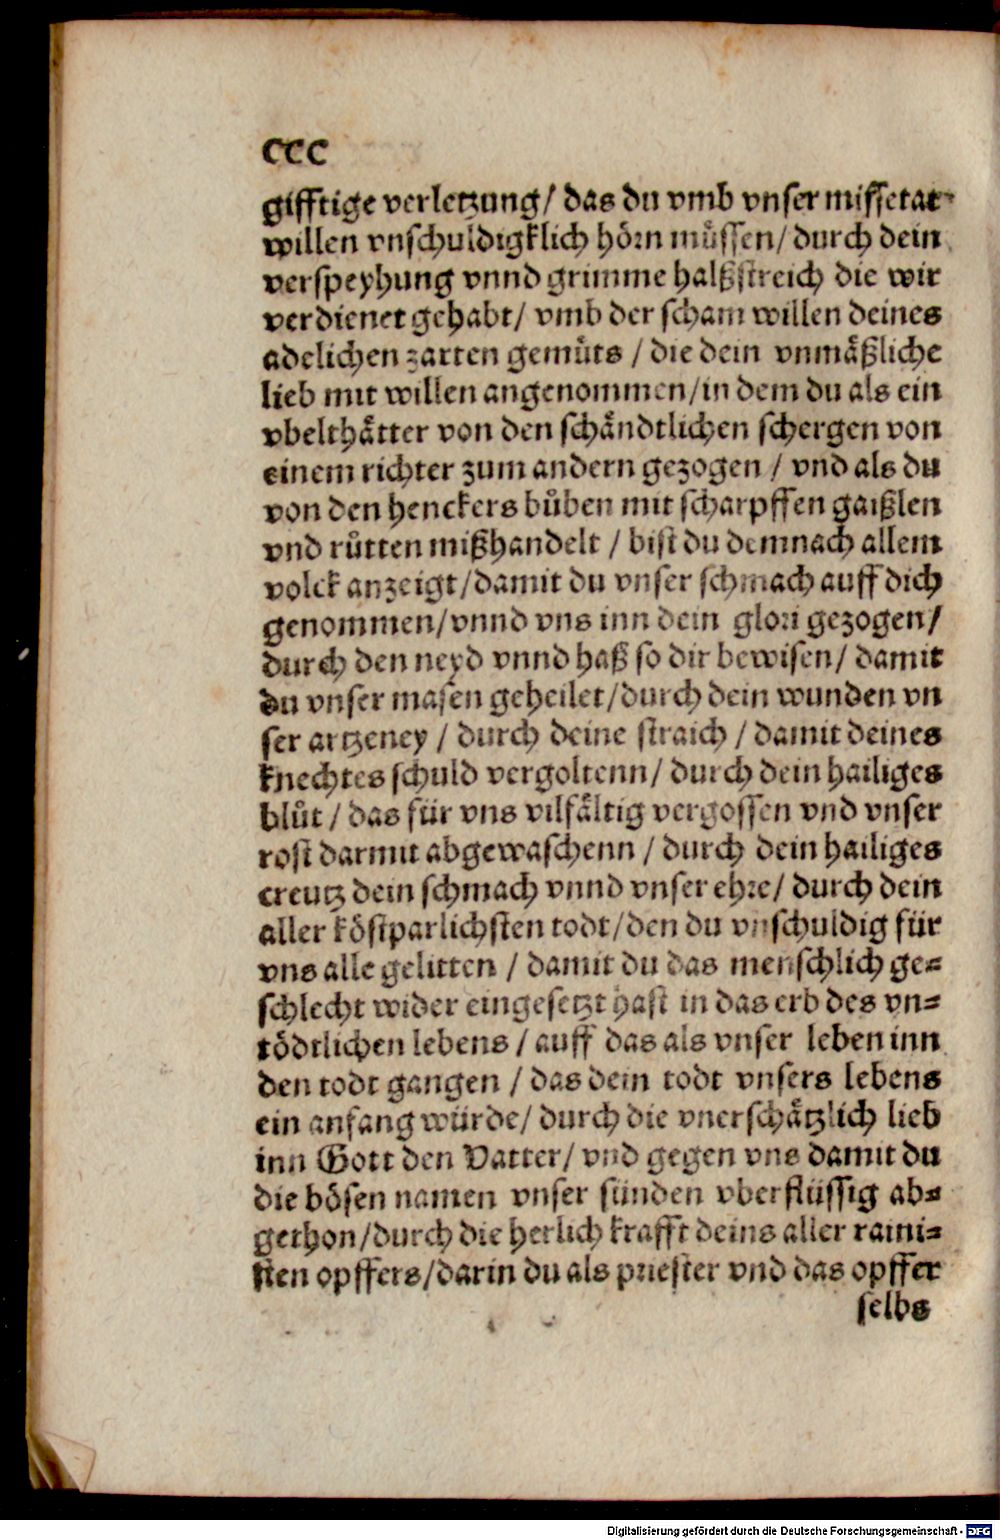 CCC
gifftige verletzung/ das du vmb vnser missetat
willen vnschuldigklich hörn müssen/ durch dein
verspeyhung vnnd grimme halßstreich die wir
verdienet gehabt/ vmb der scham willen deines
adelichen zarten gemüts / die dein vnmäßliche
lieb mit willen angenommen/in dem du als ein
vbelthätter von den schändtlichen schergen von
einem richter zum andern gezogen / vnd als du
von den henckers bůben mit scharpffen gaißlen
vnd růtten mißhandelt / bist du demnach allem
volck anzeigt/damit du vnser schmach auff dich
genommen/vnnd vns inn dein glori gezogen/
durch den neyd vnnd haß so dir bewisen/ damit
du vnser masen geheilet/durch dein wunden vn
ser artzeney / durch deine straich / damit deines
knechtes schuld vergoltenn/ durch dein hailiges
blůt / das für vns vilfältig vergossen vnd vnser
rost darmit abgewaschenn / durch dein hailiges
creutz dein schmach vnnd vnser ehre/ durch dein
aller köstparlichsten todt/den du vnschuldig für
vns alle gelitten / damit du das menschlich ge⸗
schlecht wider eingesetzt hast in das erb des vn⸗
tödtlichen lebens / auff das als vnser leben inn
den todt gangen / das dein todt vnsers lebens
ein anfang würde/ durch die vnerschätzlich lieb
inn Gott den Vatter/ vnd gegen vns damit du
die bösen namen vnser sünden vberflüssig ab⸗
gethon/durch die herlich krafft deins aller raini⸗
sten opffers/darin du als priester vnd das opffer
selbs
Digitalisierung gefördert durch die Deutsche Forschungsgemeinschaft - DFG